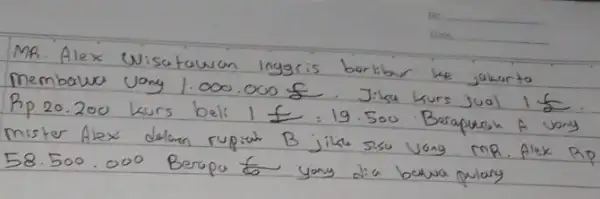 MR. Alex Wisatawan Inggris berlibur ke jakarta
membawa Uang 1.000.000 £. Jika kurs jual 1 £.
Rp 20.200 kurs beli 1 £ : 19.500. Berapakah A Uang
mister Alex dalam rupiah B jika sisa Uang MR. Alex Rp
58.500.000 Berapa £ yang dia bawa pulang